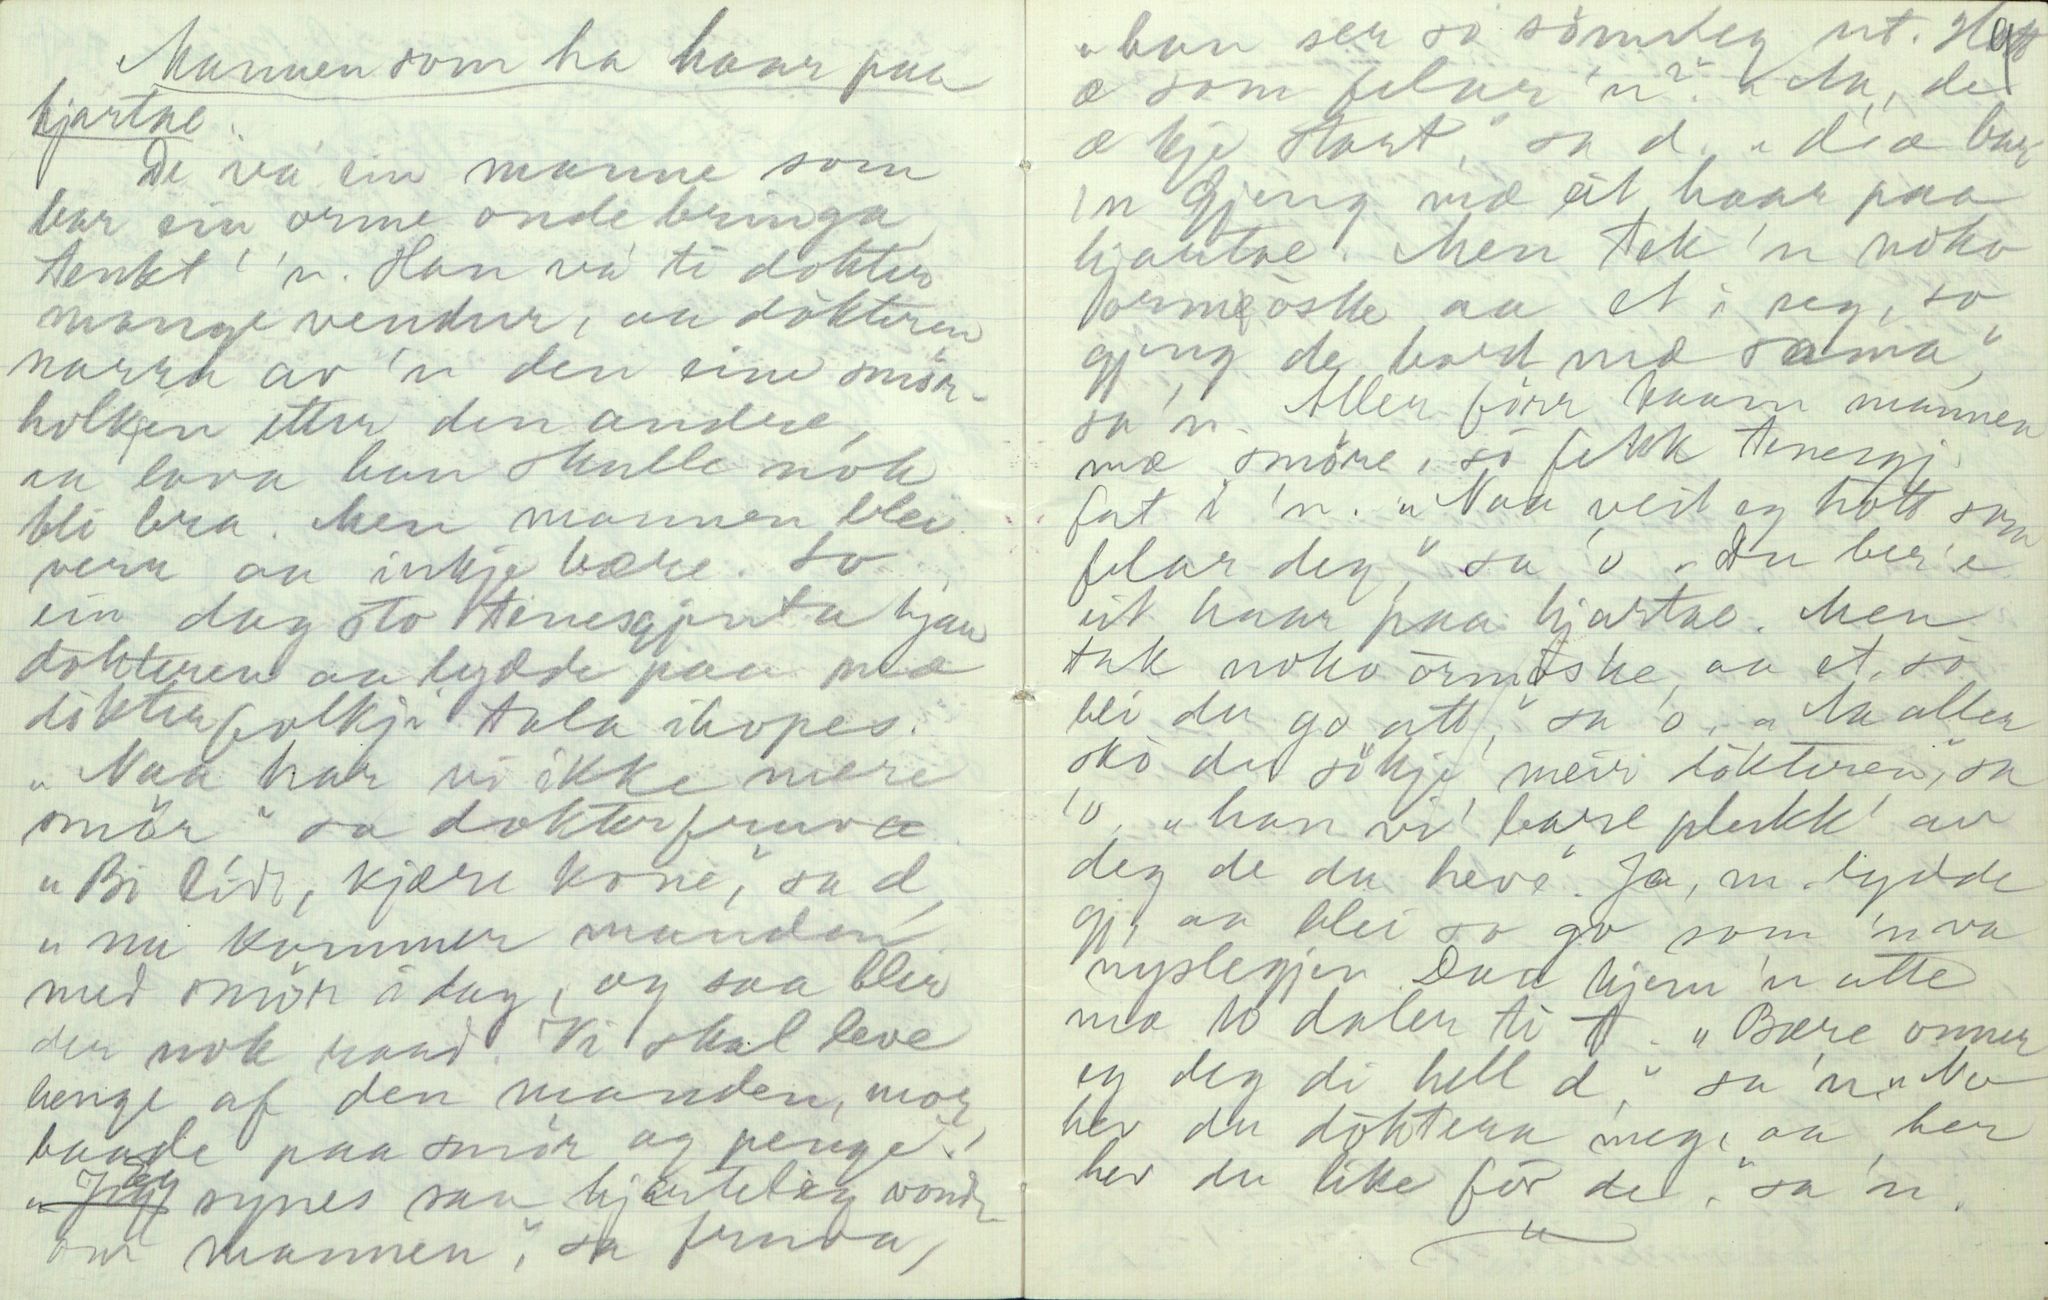 Mannen som ha haar paa
hjartae.
De va ein manne som
bar ein orme onde bringa,
tenkt' 'n. Han va ti dokter
mange vendur, aa dökteren
narra av 'n den eine smör-
holkjen etter den andre,
aa lova han skulle nok
bli bra. Men mannen blei
verr aa inkje bære. So
ein dag sto tenesgjenta hjaa
dökteren aa lydde paa mæ
dökterfolkji tala ihopes.
„Naa har vi ikke mere
smör" sa dokterfruva
„Bi lidt, kjære kone," sa d,
„nu kommer manden
med smör i dag, og saa blir
der nok raad. Vi skal leve
lenge af den manden, mor,
baade paa smör og penge."
„Eg synes saa hjerteleg vondt
om mannen", sa fruva,
„han ser so sömeleg ut. Hott
æ som felar 'n?" „Aa, de
æ kje stort," sa d. „d'æ bar
'n gjeng mæ eit haar paa
hjartae. Men tek 'n noko
ormeöske aa et i seg, so
gjeng de bord mæ sama",
sa 'n. Aller förr kaam mannen
mæ smöre, so fekk tenesgj.
fat i 'n. „Naa veit eg hott som
felar deg," sa 'o „Du ber'e
eit haar paa hjartae. Men
tak noko örmöske aa et, so
bli du go att," sa 'o. „Aa aller
sko du sökje meir dökteren", sa
'o, „han vi' bare plukk' av
deg de du heve". Ja, m. lydde
gj, aa blei so go som 'n va
nyslegjen. Daa kjem 'n atte
mæ 10 daler ti t. „Bære onner
eg deg di hell d," sa 'n. „No
hev du döktera meg, aa her
hev du like för de," sa 'n.